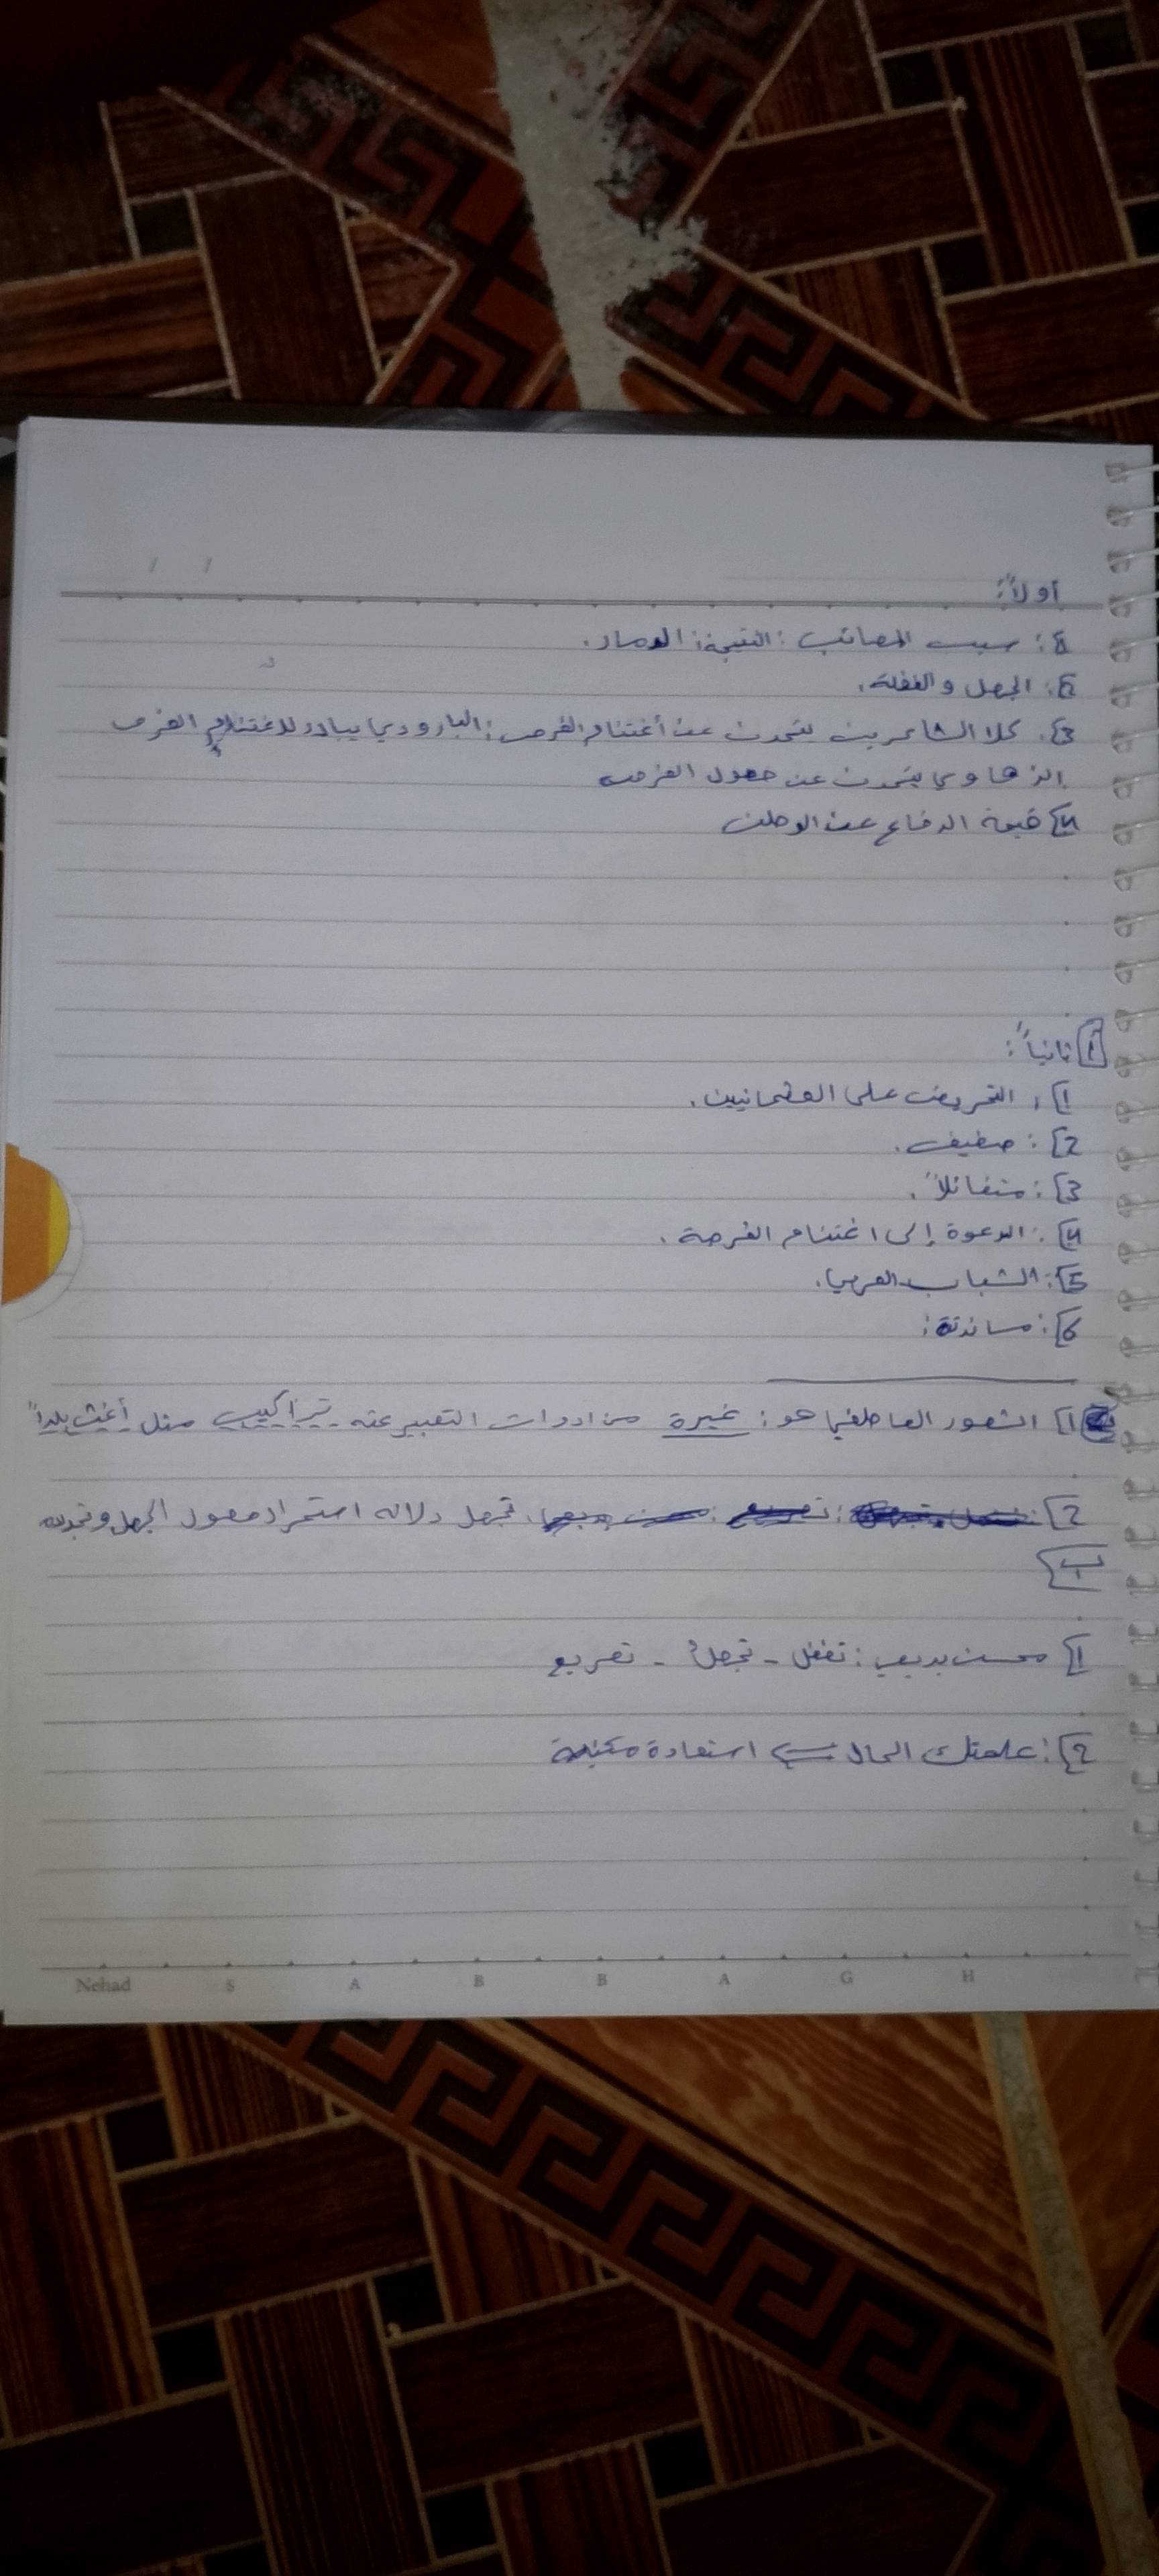 أولاً:
1: سبب المصائب: النتيجة: الدمار.
2: الجهل والغفلة.
3. كلا الشاعرين يتحدث عن أغتنام الفرص: البارودي يبادر لاغتنام الفرص
الزهاوي يتحدث عن حصول الفرص
4] قيمة الدفاع عن الوطن
أ ثانياً:
1]. التحريض على العثمانيين.
2]: ضعيف.
3]: متفائلاً.
4]: الدعوة إلى اغتنام الفرصة.
5]: الشباب العربي.
6]: ساندته:
1] الشعور العاطفي هو: غيرة من ادوات التعبير عنه تراكيب مثل أغث بلداً
2]: تجهل دلاله استمرار حصول الجهل وتجدده
ب]
1] محسن بديعي: تغفل - تجهلُ - تصريع
2]: علمتك الحال استعارة مكنية
Nehad S A B B A G H